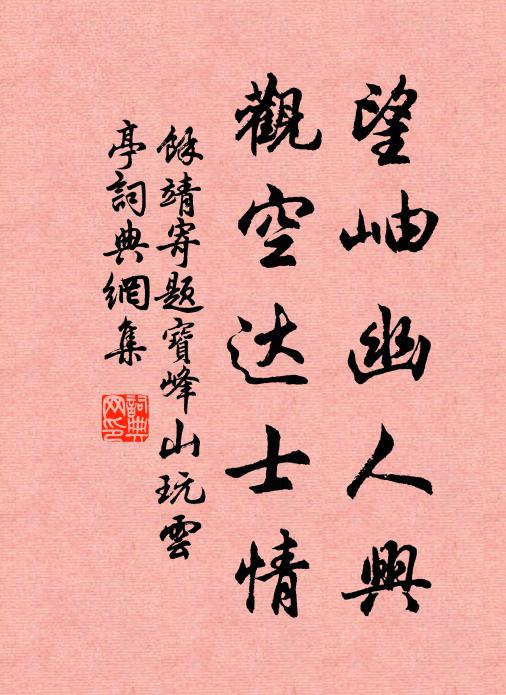 望岫幽人興
觀空达士情
餘靖寄題寶峰山玩雲
亭詞典網集
詞典
网印